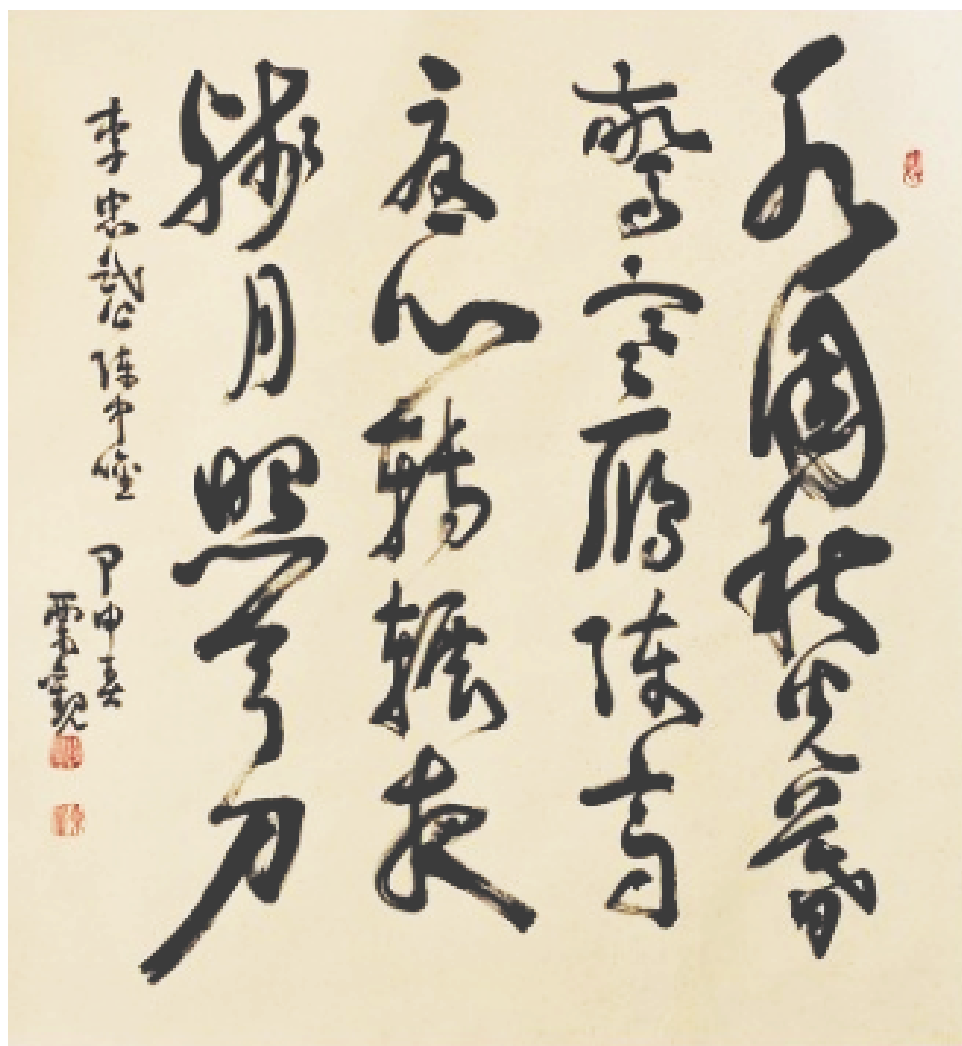 水國秋光暮
驚寒雁陣高
憂心轉輾夜
殘月照弓刀
李忠武公陣中吟
甲申春